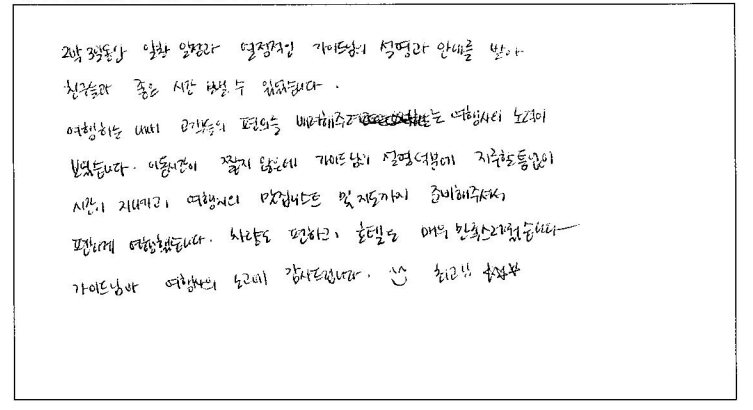 2박 3일동안 알찬 일정과 열정적인 가이드님의 설명과 안내를 받아
친구들과 좋은 시간 보낼 수 있었습니다.
여행하는 내내 고객들의 편의를 배려해주려는 여행사의 노력이
보였습니다. 이동시간이 짧지 않은데 가이드님의 설명덕분에 지루할틈없이
시간이 지나가고 여행지의 맛집리스트 및 지도까지 준비해주셔서
편하게 여행했습니다. 차량도 편하고 호텔도 매우 만족스러웠습니다
가이드님과 여행사의 노고에 감사드립니다. 최고!!